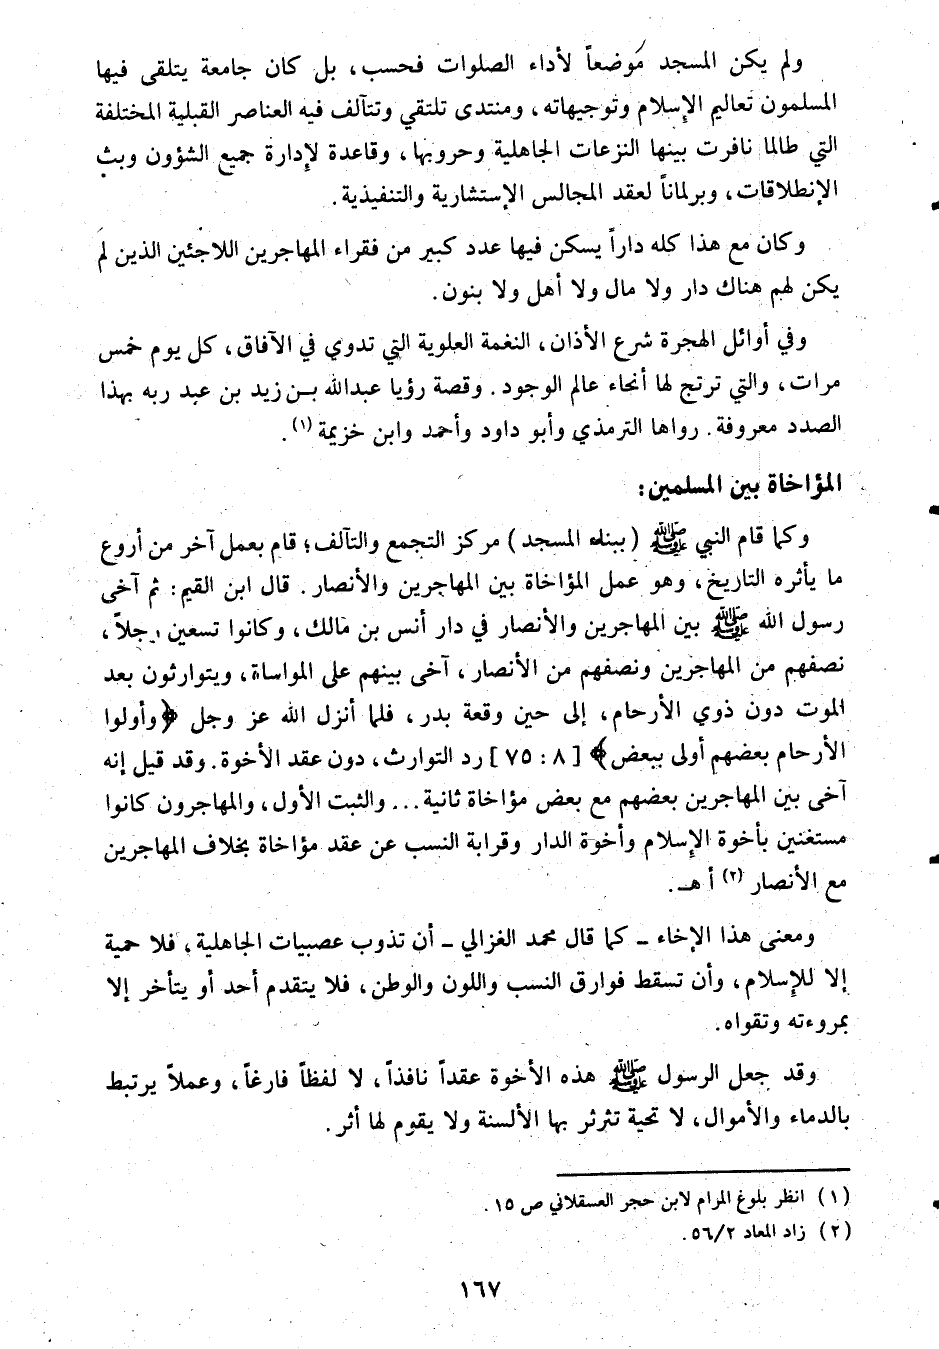 ولم يكن المسجد موضعاً لأداء الصلوات فحسب، بل كان جامعة يتلقى فيها
المسلمون تعاليم الإسلام وتوجيهاته، ومنتدى تلتقي وتتآلف فيه العناصر القبلية المختلفة
التي طالما نافرت بينها النزعات الجاهلية وحروبها، وقاعدة لإدارة جميع الشؤون وبث
الإنطلاقات، وبرلماناً لعقد المجالس الإستشارية والتنفيذية.
وكان مع هذا كله داراً يسكن فيها عدد كبير من فقراء المهاجرين اللاجئين الذين لم
يكن لهم هناك دار ولا مال ولا أهل ولا بنون.
وفي أوائل الهجرة شرع الأذان، النغمة العلوية التي تدوي في الآفاق، كل يوم خمس
مرات، والتي ترتج لها أنحاء عالم الوجود. وقصة رؤيا عبدالله بـن زيد بن عبد ربه بهذا
الصدد معروفة. رواها الترمذي وأبو داود وأحمد وابن خزيمة (١).
المؤاخاة بين المسلمين:
وكما قام النبي ﷺ (ببناء المسجد) مركز التجمع والتآلف؛ قام بعمل آخر من أروع
ما يأثره التاريخ، وهو عمل المؤاخاة بين المهاجرين والأنصار. قال ابن القيم: ثم آخى
رسول الله ﷺ بين المهاجرين والأنصار في دار أنس بن مالك، وكانوا تسعين رجلاً،
نصفهم من المهاجرين ونصفهم من الأنصار، آخى بينهم على المواساة، ويتوارثون بعد
الموت دون ذوي الأرحام، إلى حين وقعة بدر، فلما أنزل الله عز وجل ﴿وأولوا
الأرحام بعضهم أولى ببعض﴾ [٨ : ٧٥] رد التوارث، دون عقد الأخوة. وقد قيل إنه
آخى بين المهاجرين بعضهم مع بعض مؤاخاة ثانية... والثبت الأول، والمهاجرون كانوا
مستغنين بأخوة الإسلام وأخوة الدار وقرابة النسب عن عقد مؤاخاة بخلاف المهاجرين
مع الأنصار (٢) أ هـ.
ومعنى هذا الإخاء ـ كما قال محمد الغزالي ـ أن تذوب عصبيات الجاهلية، فلا حمية
إلا للإسلام، وأن تسقط فوارق النسب واللون والوطن، فلا يتقدم أحد أو يتأخر إلا
بمروءته وتقواه.
وقد جعل الرسول ﷺ هذه الأخوة عقداً نافذاً، لا لفظاً فارغاً، وعملاً يرتبط
بالدماء والأموال، لا تحية تثرثر بها الألسنة ولا يقوم لها أثر.
(١) انظر بلوغ المرام لابن حجر العسقلاني ص ١٥.
(٢) زاد المعاد ٥٦/٢.
١٦٧